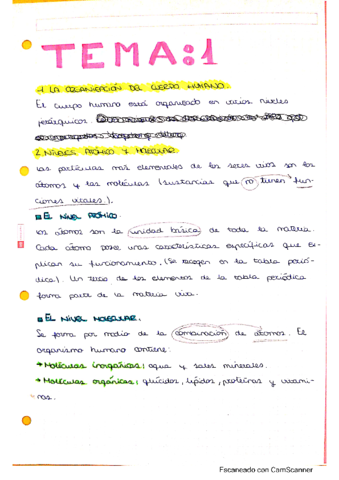 TEMA:1
1 LA ORGANIZACIÓN DEL CUERPO HUMANO.
El cuerpo humano está organizado en varios niveles
jerárquicos
2. NIVELES ATÓMICO Y MOLECULAR
Las partículas más elementales de los seres vivos son los
átomos y las moléculas (sustancias que no tienen fun-
ciones vitales).
EL NIVEL ATÓMICO.
Los átomos son la unidad básica de toda la materia.
Cada átomo posee unas características específicas que ex-
plican su funcionamiento. (Se recogen en la tabla perió-
dica). Un tercio de los elementos de la tabla periódica
forma parte de la materia viva.
EL NIVEL MOLECULAR.
Se forma por medio de la combinación de átomos. El
organismo humano contiene:
→ Moléculas inorgánicas: agua y sales minerales.
→ Moléculas orgánicas: glúcidos, lípidos, proteínas y vitami-
nas.
Escaneado con CamScanner